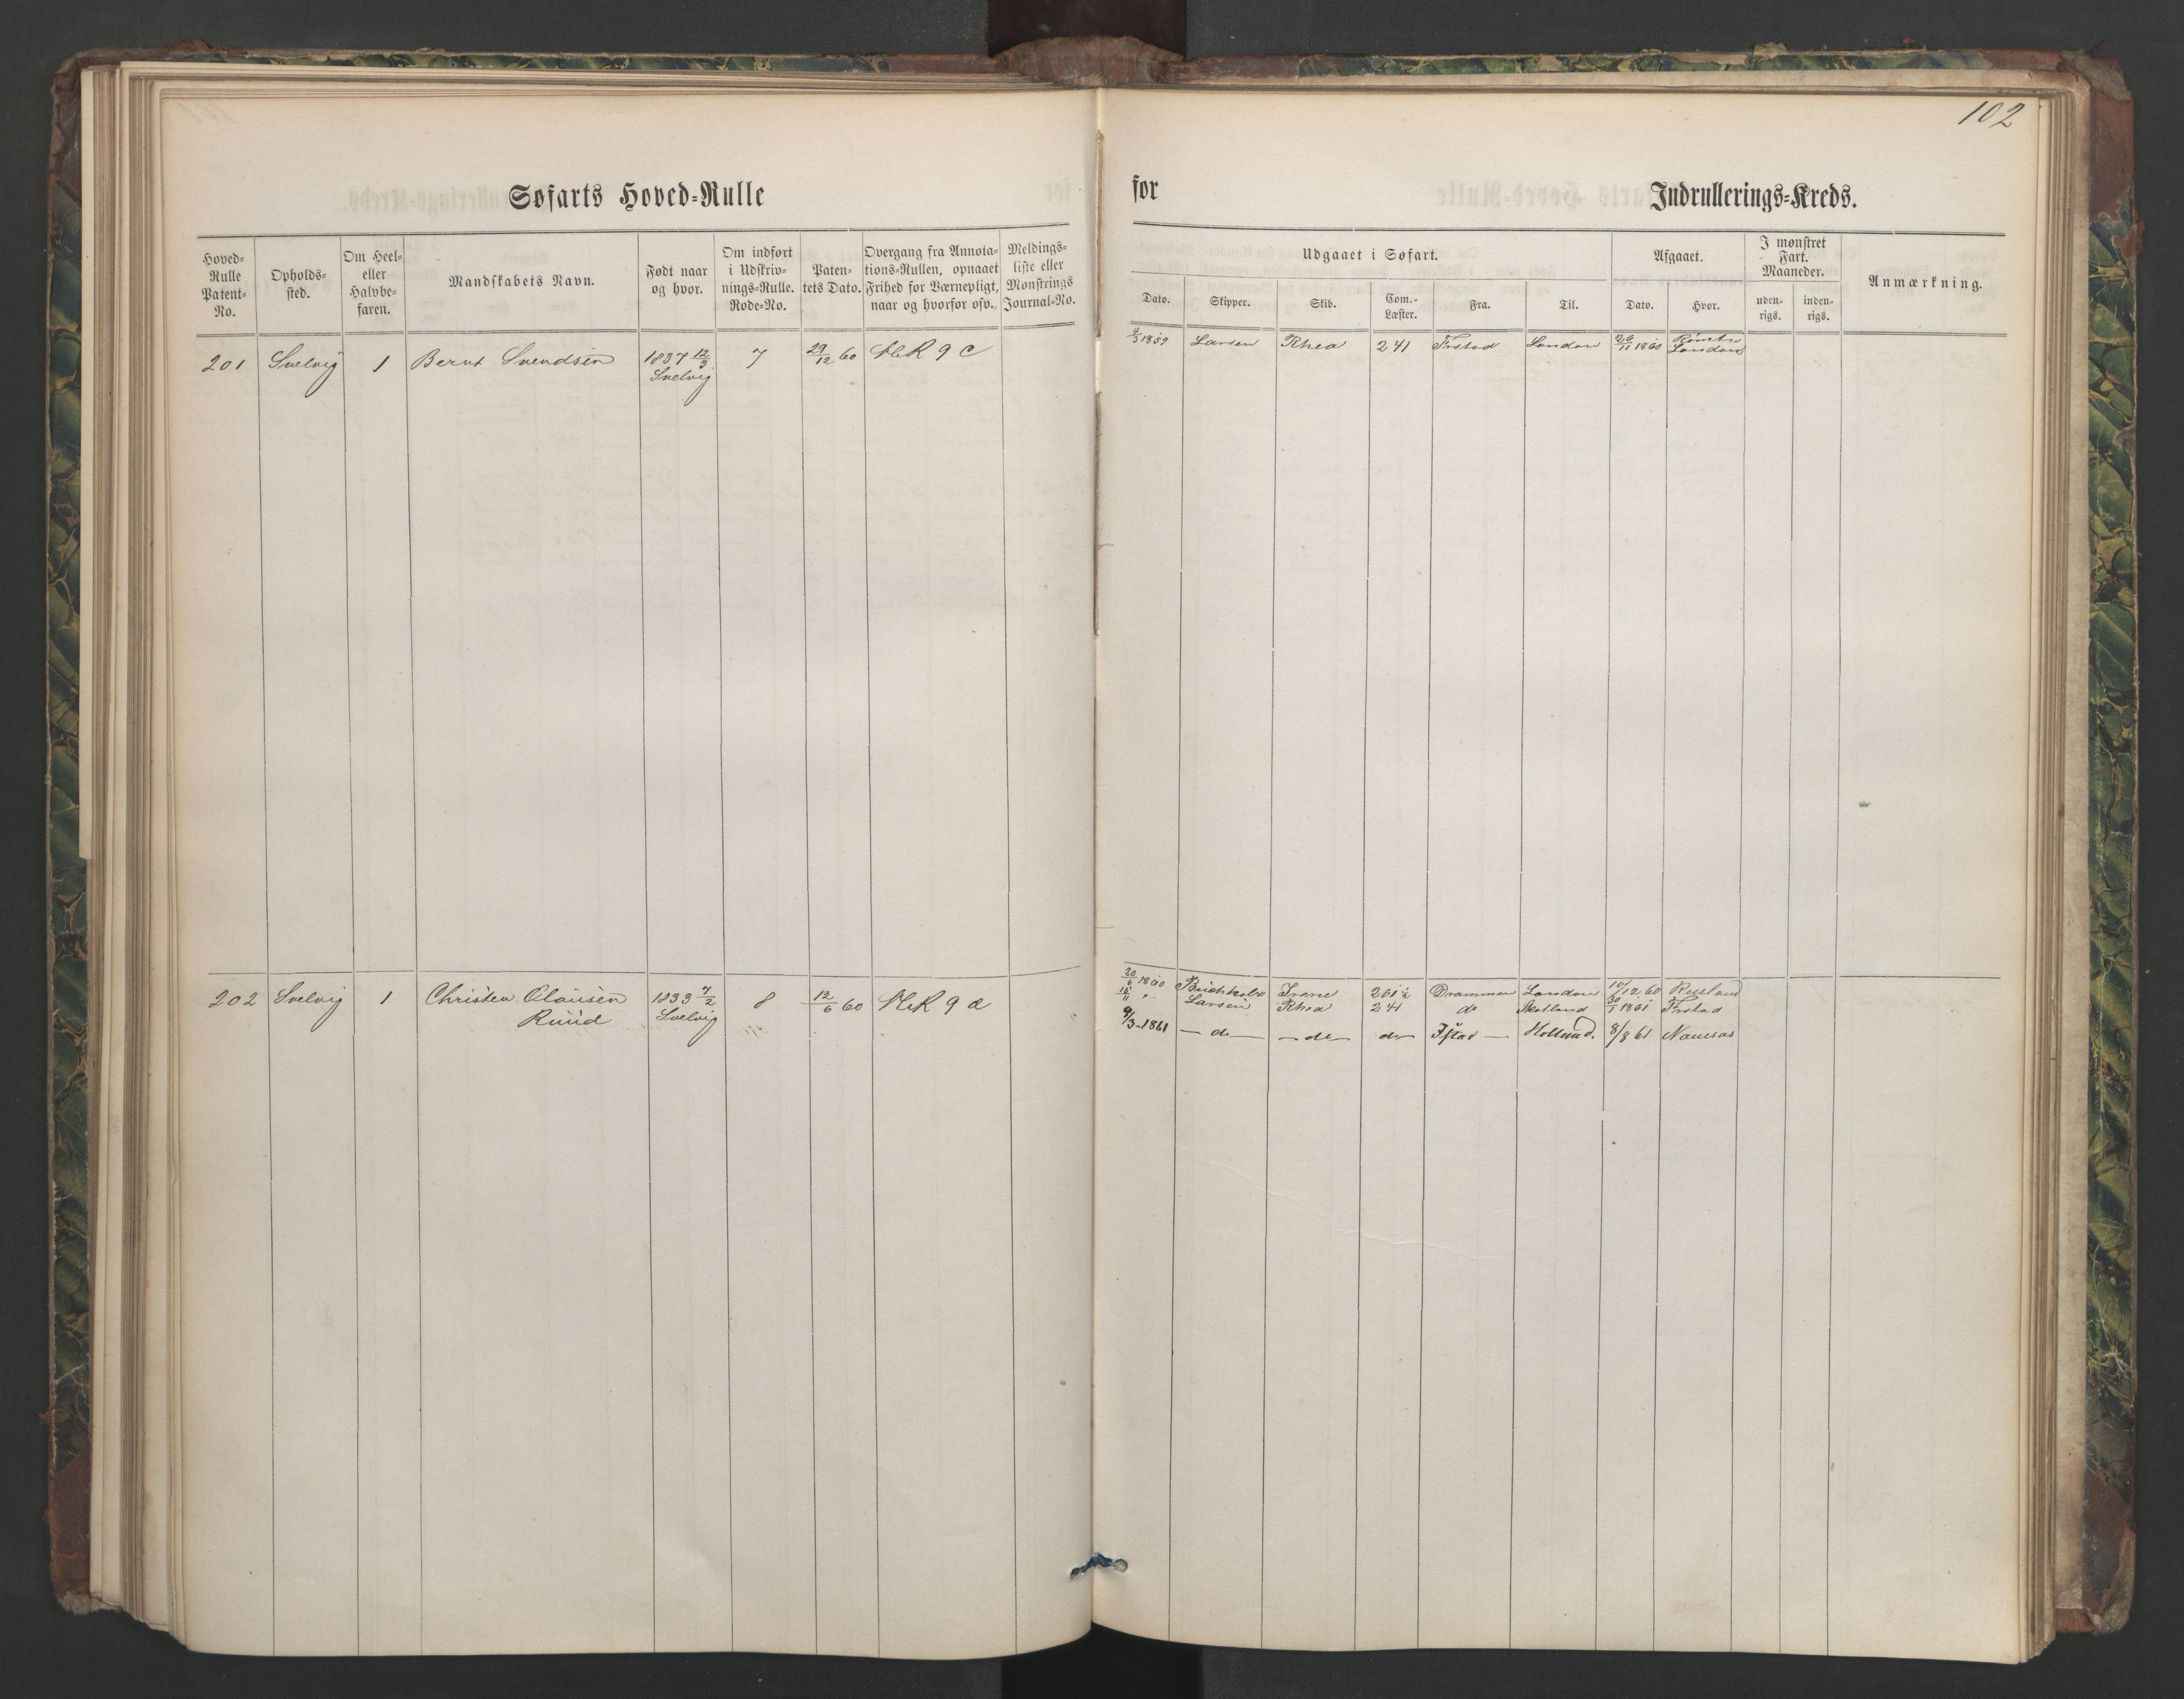 102
Søfarts Hoved-Rulle
for
Indrullerings-Kreds.
Hoved-
Rulle
Patent-
No.
Opholds-
sted.
Om Heel-
eller
Halvbe-
faren.
Mandskabets Navn.
Født naar
og hvor.
Om indført
i Udskriv-
nings-Rulle.
Rode-No.
Paten-
tets Dato.
Overgang fra Annota-
tions-Rullen, opnaaet
Frihed for Værnepligt,
naar og hvorfor osv.
Meldings-
liste eller
Mønstrings
Journal-No.
Udgaaet i Søfart.
Dato.
Skipper.
Skib.
Com.-
Læster.
Fra.
Til.
Afgaaet.
Dato.
Hvor.
I mønstret
Fart.
Maaneder.
uden-
rigs.
inden-
rigs.
Anmærkning.
201 Svelvig 1 Bernt Svendsen 1837 12/3 7 29/12 60 R 9 c
Svelvig
1859 Larsen Rhea 241 Frstad London 26/11 1860
London
202 Svelvig 1 Christen Olausen 1833 7/2 8 12/6 60 R 9 d
Ruud Svelvig
20/6 1860 Irene 261½ Drammen London 10/12 60 Rusland
Larsen Rhea 241 do Skotland 30/1 1861 Frstad
9/3-1861 — do — — do — do Fstad — Holland. 8/8 61